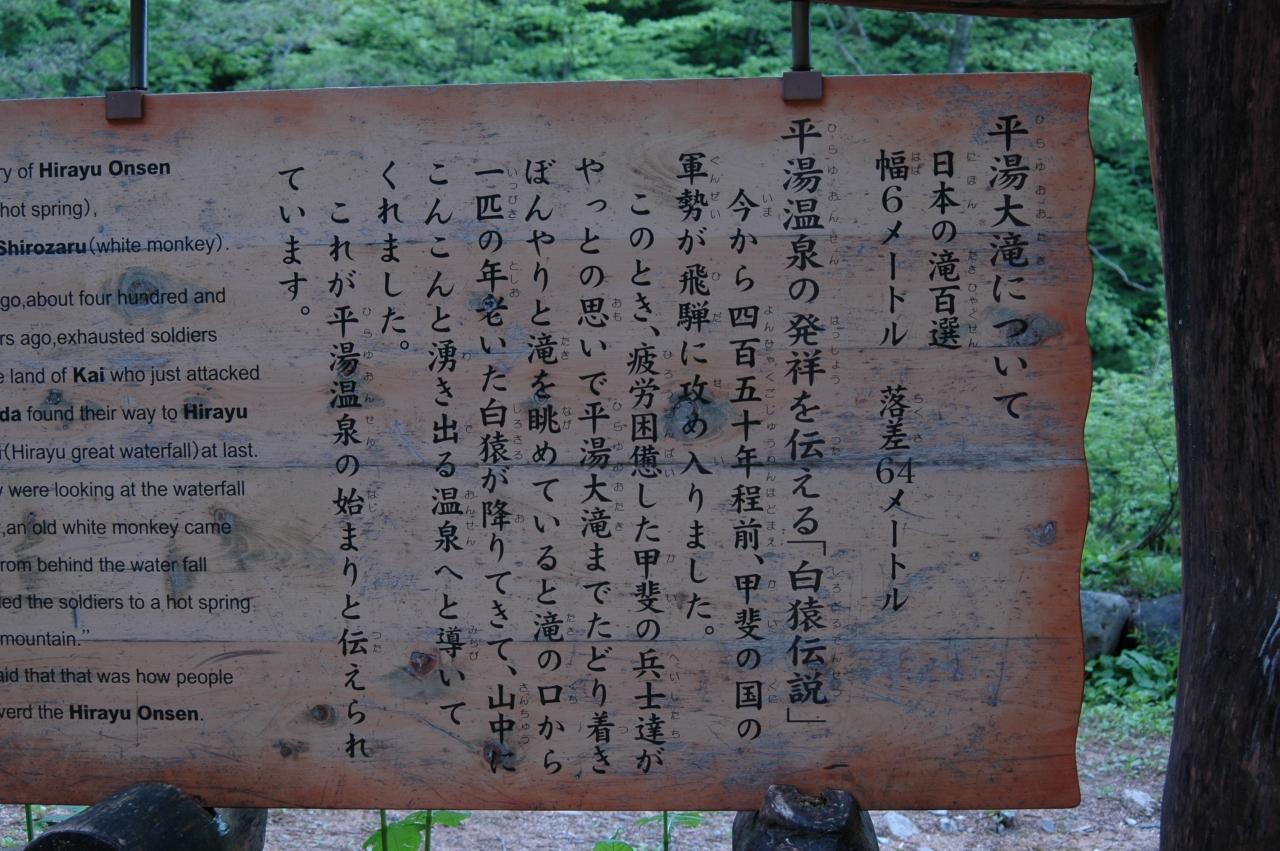 平湯大滝について
日本の滝百選
幅6メートル　落差64メートル
平湯温泉の発祥を伝える「白猿伝説」
今から四百五十年程前、甲斐の国の
軍勢が飛騨に攻め入りました。
このとき、疲労困憊した甲斐の兵士達が
やっとの思いで平湯大滝までたどり着き
ぼんやりと滝を眺めていると滝の口から
一匹の年老いた白猿が降りてきて、山中に
こんこんと湧き出る温泉へと導いて
くれました。
これが平湯温泉の始まりと伝えられ
ています。
ry of Hirayu Onsen
hot spring),
Shirozaru(white monkey).
go,about four hundred and
rs ago,exhausted soldiers
e land of Kai who just attacked
da found their way to Hirayu
i(Hirayu great waterfall)at last.
y were looking at the waterfall
,an old white monkey came
rom behind the water fall
ed the soldiers to a hot spring
mountain."
aid that that was how people
verd the Hirayu Onsen.